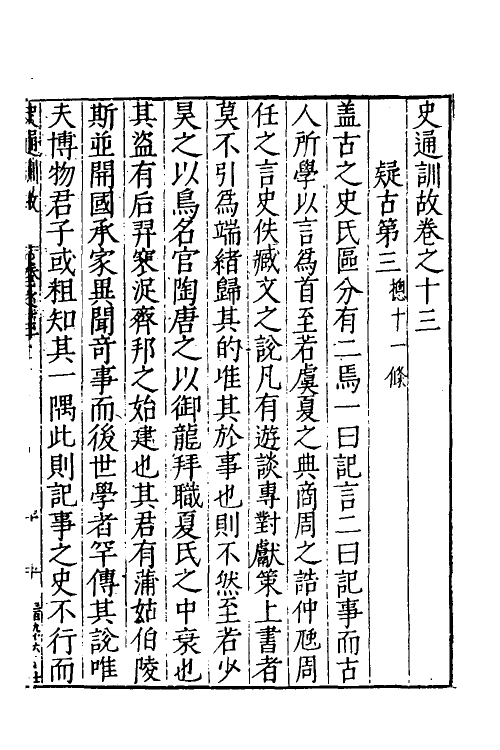 史通訓故卷之十三
疑古第三 緫十一條
盖古之史氏區分有二焉一曰記言二曰記事而古
人所學以言爲首至若虞夏之典商周之誥仲虺周
任之言史佚臧文之說凡有遊談專對獻策上書者
莫不引爲端緒歸其的凖其於事也則不然至若少
昊之以鳥名官陶唐之以御龍拜職夏氏之中衰也
其盗有后羿寒浞齊邦之始建也其君有蒲姑伯陵
斯並開國承家異聞奇事而後世學者罕傳其說唯
夫博物君子或粗知其一隅此則記事之史不行而
史通訓故